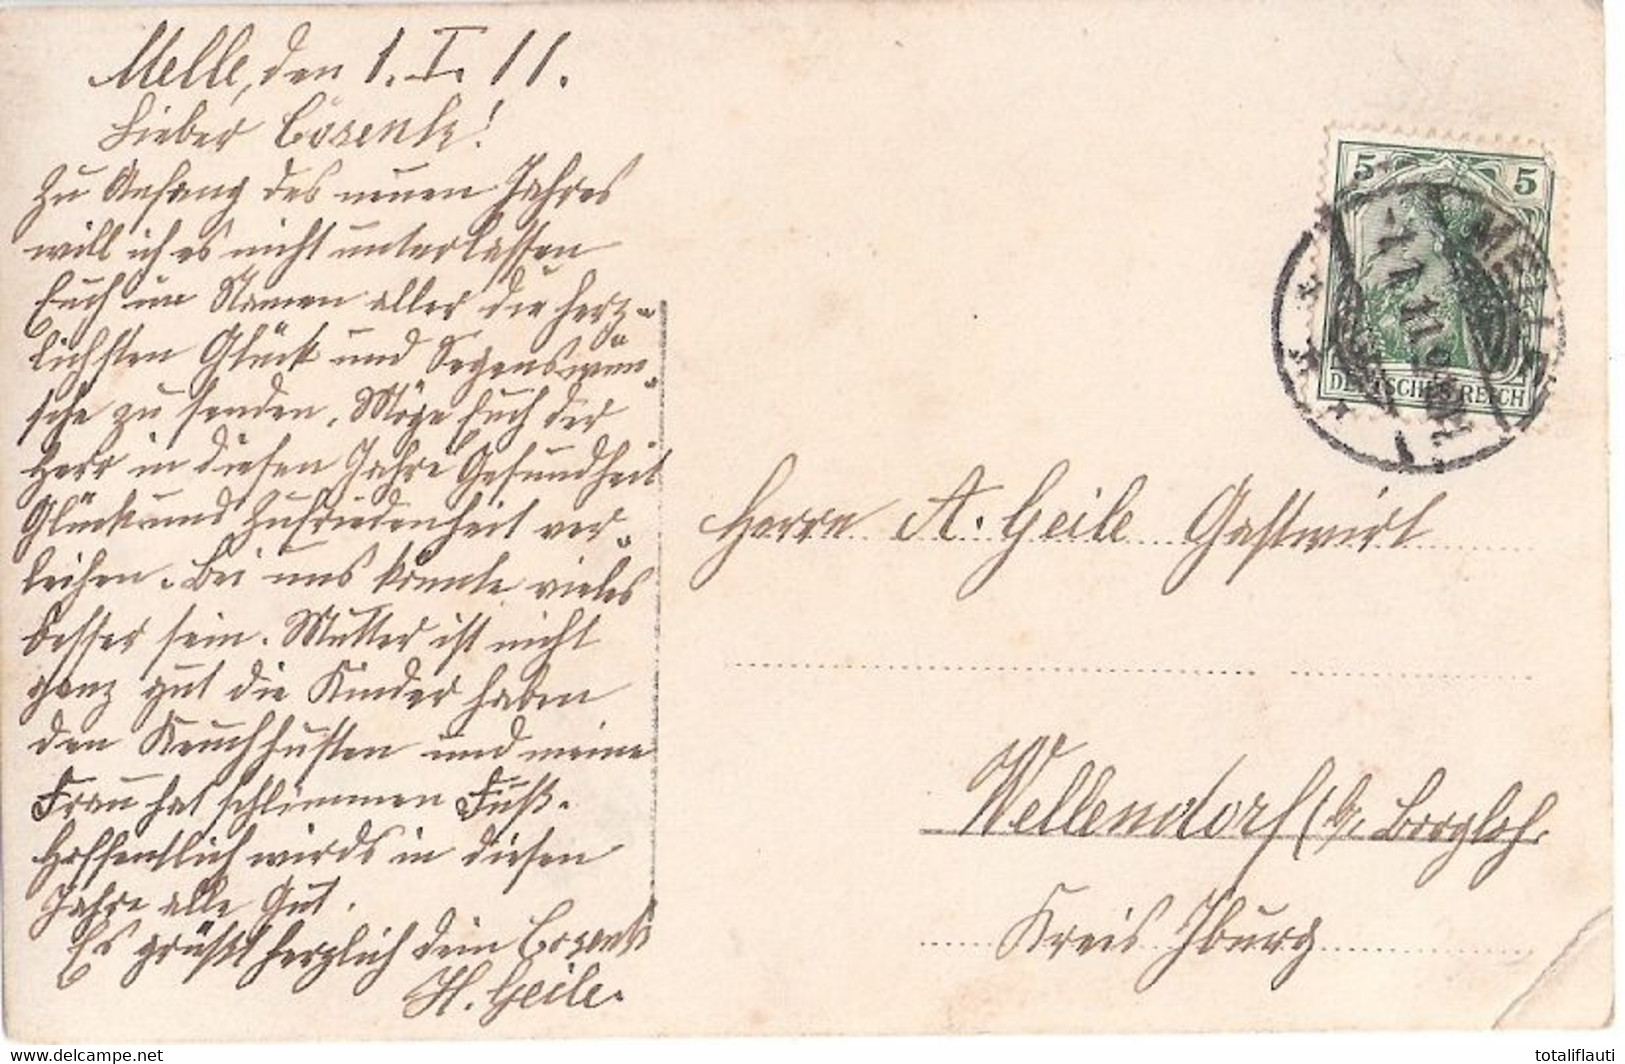 Melle, den 1. I. 11.
Lieber Cösenk!
Zu Anfang des neuen Jahres
will ich es nicht unterlassen
Euch im Namen aller die herz-
lichsten Glück und Segenswün-
sche zu senden. Möge Euch der
Herr in diesen Jahre Gesundheit
Glück und Zufriedenheit ver-
leihen. Bei uns könnte vieles
besser sein. Mutter ist nicht
ganz gut die Kinder haben
den Keuchhusten und meine
Frau hat schlimmen Fuß.
Hoffentlich wirds in diesen
Jahre alle Gut.
Es grüßt herzlich dein Cosenk
H. Geile.
5 5
MELLE
1.1.11
DEUTSCHES REICH
Herrn A. Geile Gastwirt
Wellendorf b. Borgloh.
Kreis Iburg
totaliflauti
delcampe.net